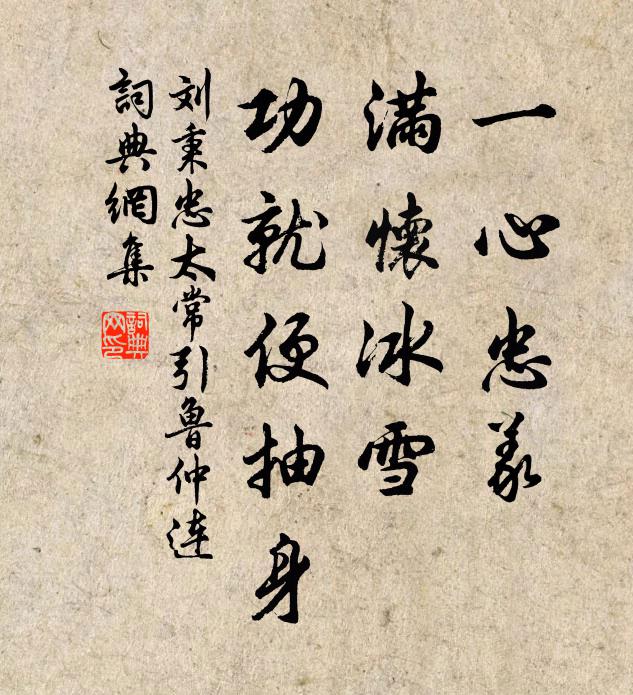 一心忠义
满懷冰雪
功就便抽身
刘秉忠太常引魯仲连
詞典網集
詞典
网印